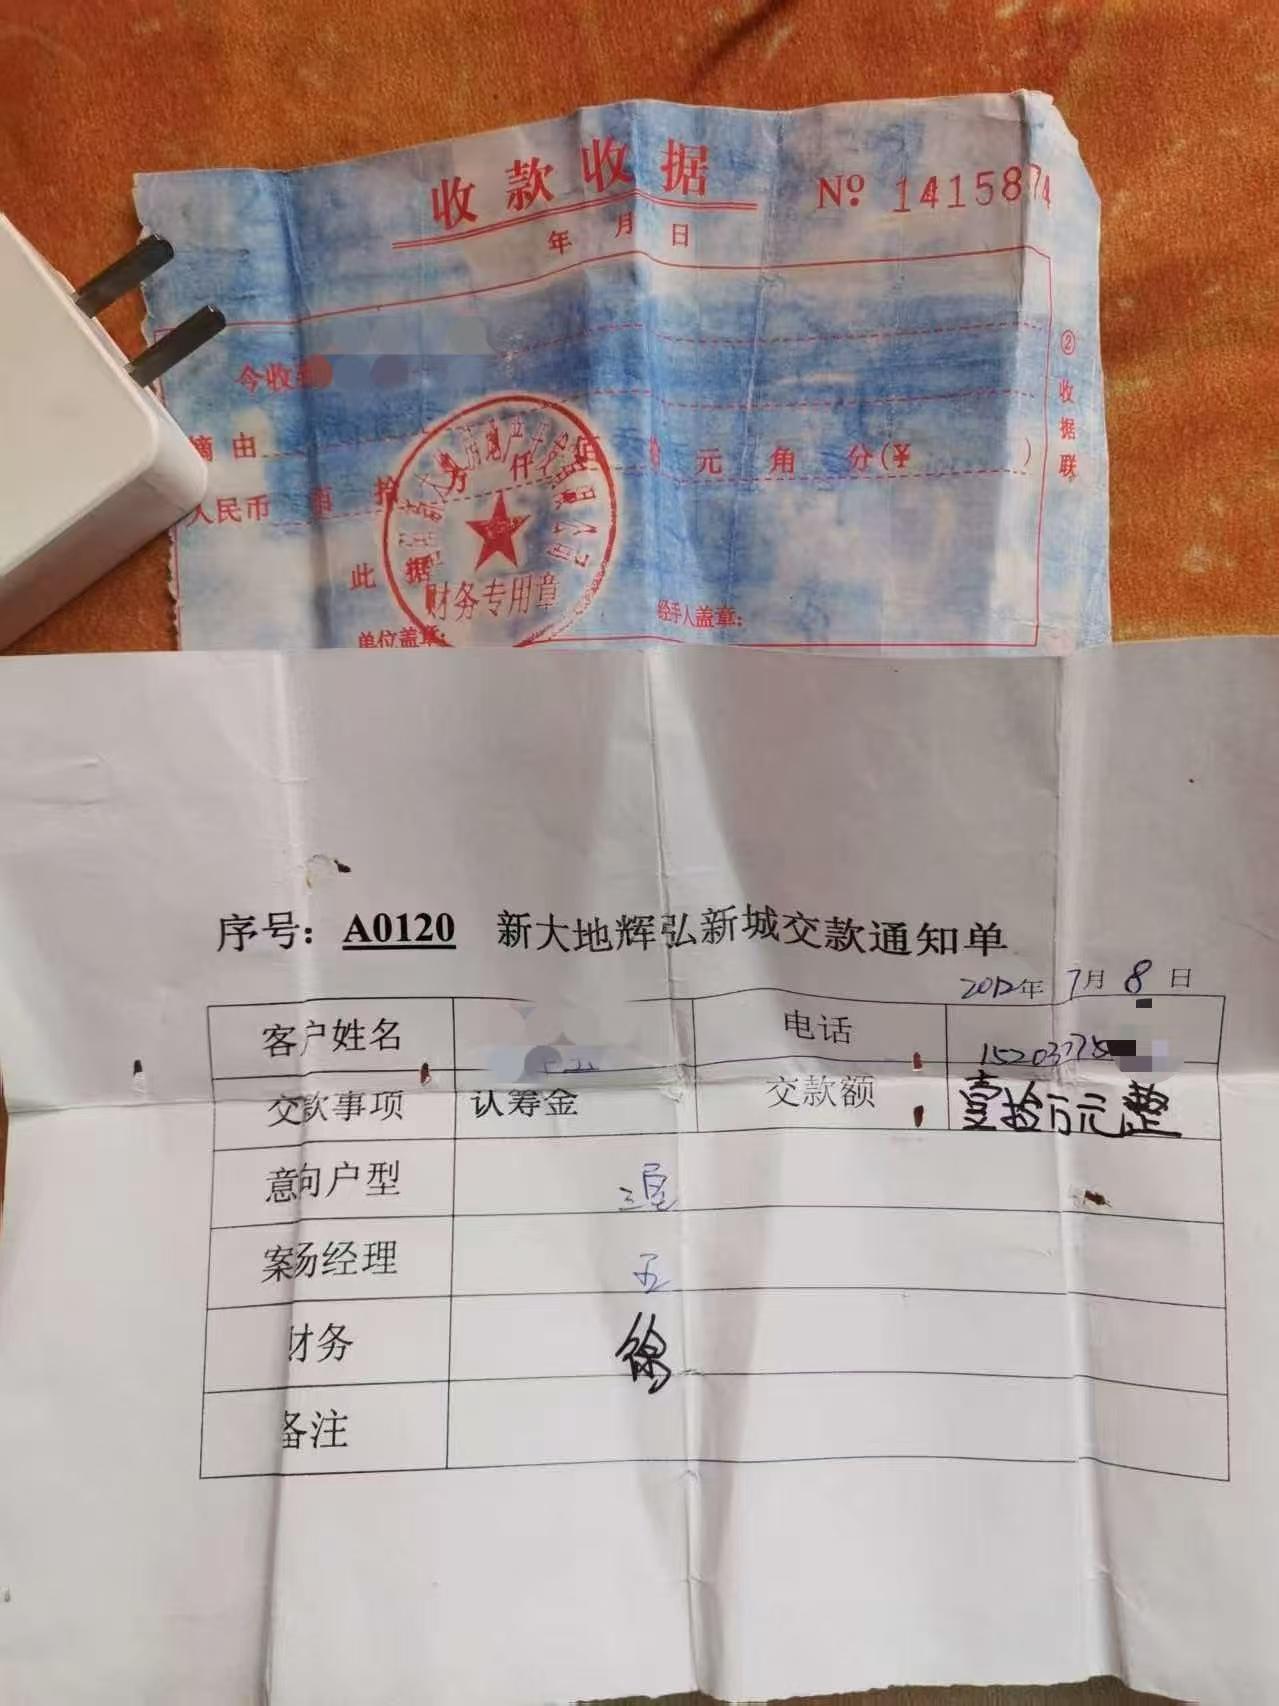 收款收据
No. 1415874
年 月 日
今收
摘由
人民币 佰 拾 万 仟 拾 元 角 分(¥ )
此据
财务专用章
单位盖章:
经手人盖章:
②收据联
序号: A0120 新大地辉弘新城交款通知单
2012年 7月 8日
客户姓名 电话 15203775
交款事项 认筹金 交款额 壹拾万元整
意向户型 三居
案场经理
财务 徐
备注